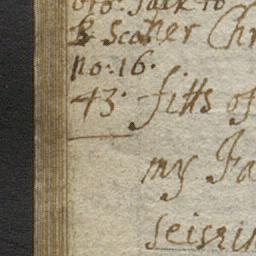 oro: Jack to
& Scother Chr
no: 16.
43. fitts of
my Fa
seisin